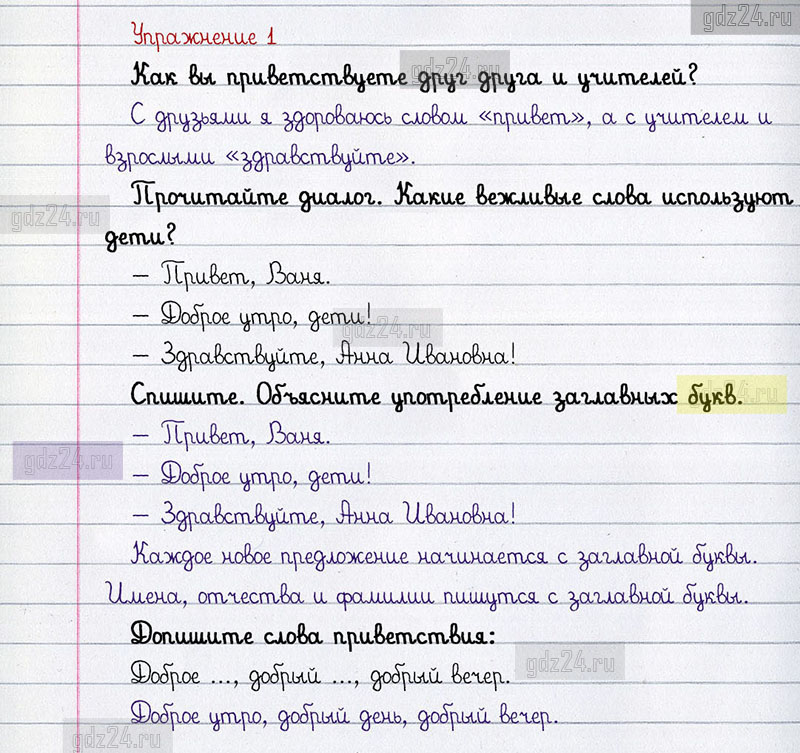 gdz24.ru
Упражнение 1
Как вы приветствуете друг друга и учителей?
gdz24.ru
С друзьями я здороваюсь словом «привет», а с учителем и
взрослыми «здравствуйте».
Прочитайте диалог. Какие вежливые слова используют
gdz24.ru
дети?
– Привет, Ваня.
– Доброе утро, дети!
gdz24.ru
– Здравствуйте, Анна Ивановна!
Спишите. Объясните употребление заглавных букв.
gdz24.ru
– Привет, Ваня.
gdz24.ru
– Доброе утро, дети!
– Здравствуйте, Анна Ивановна!
Каждое новое предложение начинается с заглавной буквы.
Имена, отчества и фамилии пишутся с заглавной буквы.
Допишите слова приветствия:
gdz24.ru
Доброе ..., добрый ..., добрый вечер.
Доброе утро, добрый день, добрый вечер.
gdz24.ru